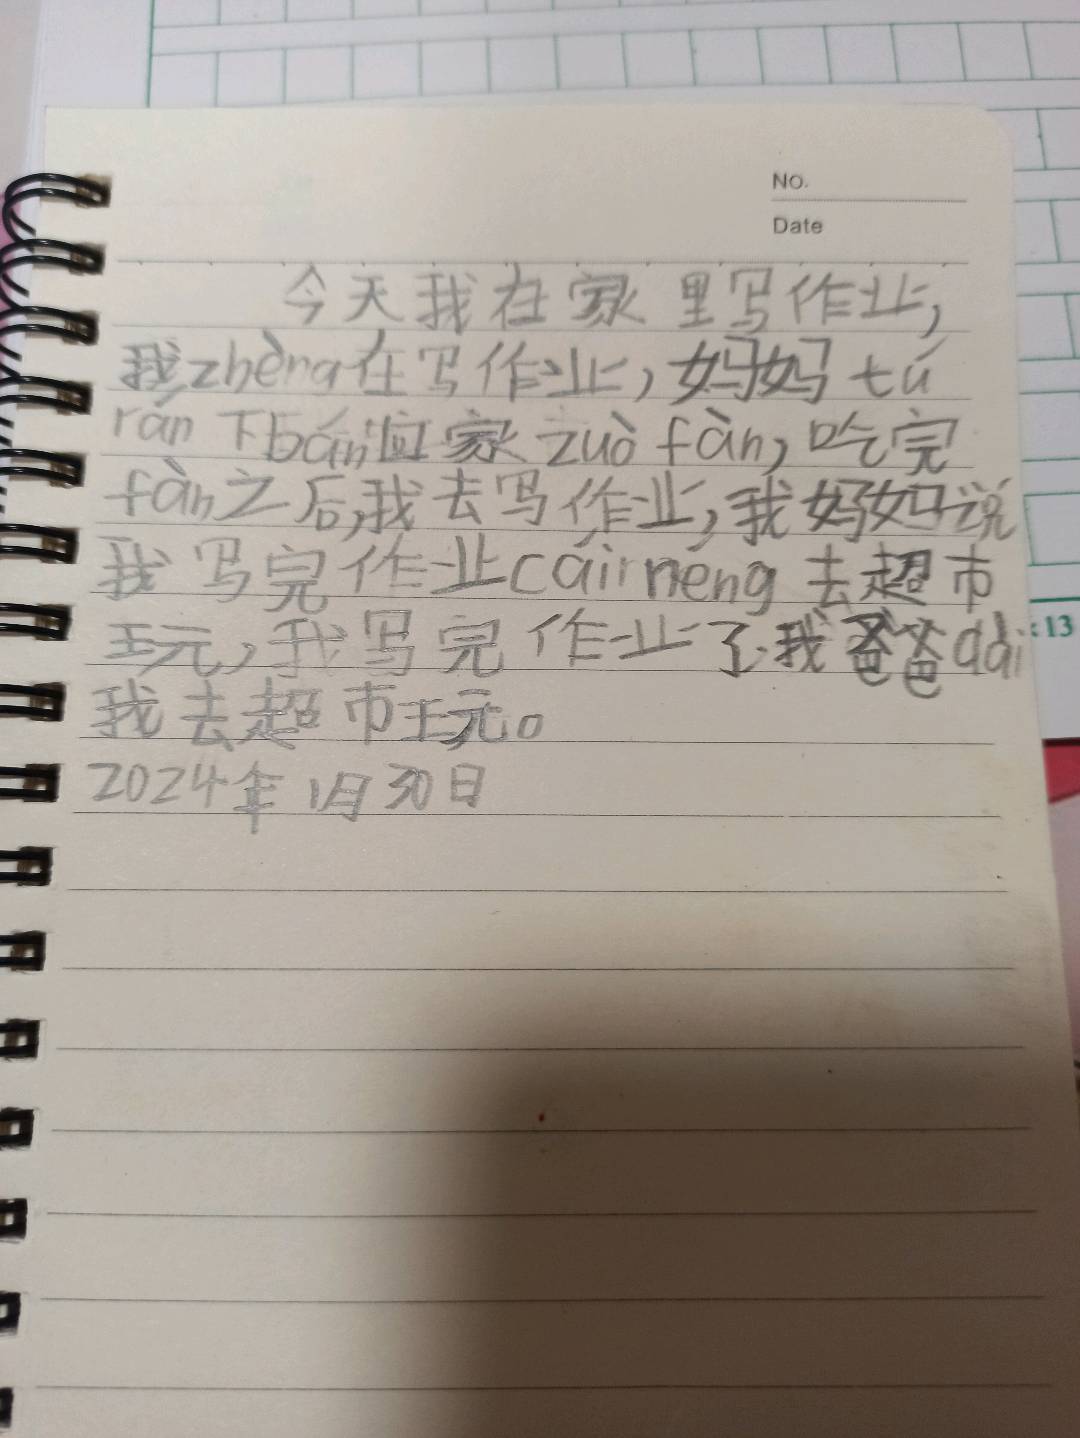 NO.
Date
今天我在家里写作业,
我zhèng在写作业,妈妈tú
rán下bán回家zuò fàn,吃完
fàn之后,我去写作业,我妈妈说
我写完作业cáinéng去超市
玩,我写完作业了,我爸爸dài
我去超市玩。
2024年1月30日
:13